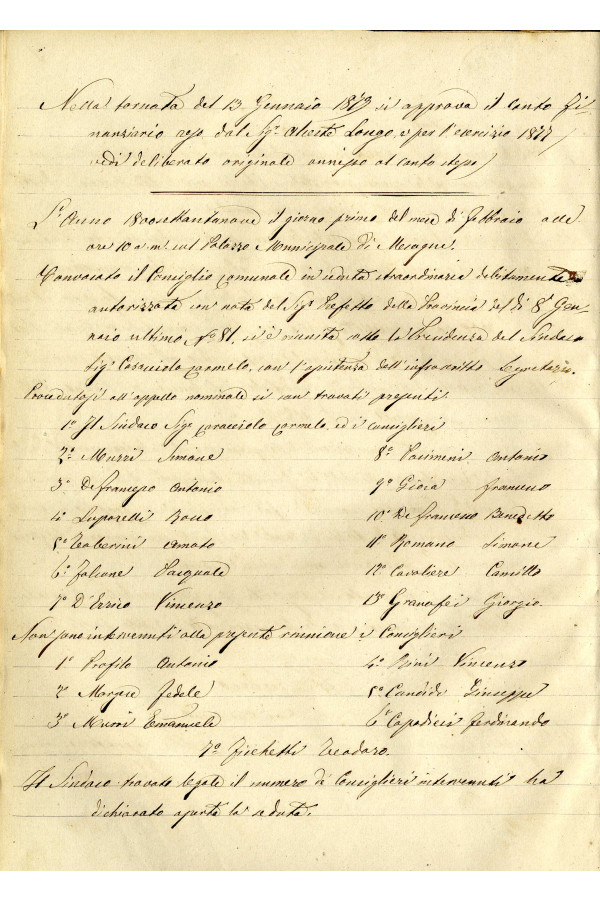 Nella tornata del 13 Gennaio 1879 si approva il conto fi-
nanziario reso dal Sigr Oreste Longo, per l'esercizio 1877 /
vedi deliberato originale annesso al conto stesso /
L'Anno 1800settantanove il giorno primo del mese di Febbraio alle
ore 10 a.m. sul Palazzo Municipale di Mesagne.
Convocato il Consiglio comunale in seduta straordinaria debitamente
autorizzata con nota del Sigr Prefetto della Provincia del dì 8 Gen-
naio ultimo N.º 81, si è riunita sotto la Presidenza del Sindaco
Sigr Caracciolo Carmelo, con l'assistenza dell'infrascritto Segretario.
Procedutosi all'appello nominale si son trovati presenti.
1º Il Sindaco Sigr Caracciolo Carmelo, ed i consiglieri
2º Murri Simone
3º Defrancesco Antonio
4º Luparelli Rocco
5º Taberini Amato
6º Falcone Pasquale
7º D'Errico Vincenzo
8º Pacimeni Antonio
9º Gioia Francesco
10º De Francesco Benedetto
11º Romano Simone
12º Cavaliere Camillo
13º Granafei Giorgio.
Non sono intervenuti alla presente riunione i Consiglieri
1º Profilo Antonio
2º Fedele
3º Murri Emanuele
4º Rini Vincenzo
5º Candido Giuseppe
6º Capodieci Ferdinando
7º Fischetti Teodoro.
Il Sindaco trovato legale il numero di Consiglieri intervenuti ha
dichiarato aperta la seduta.